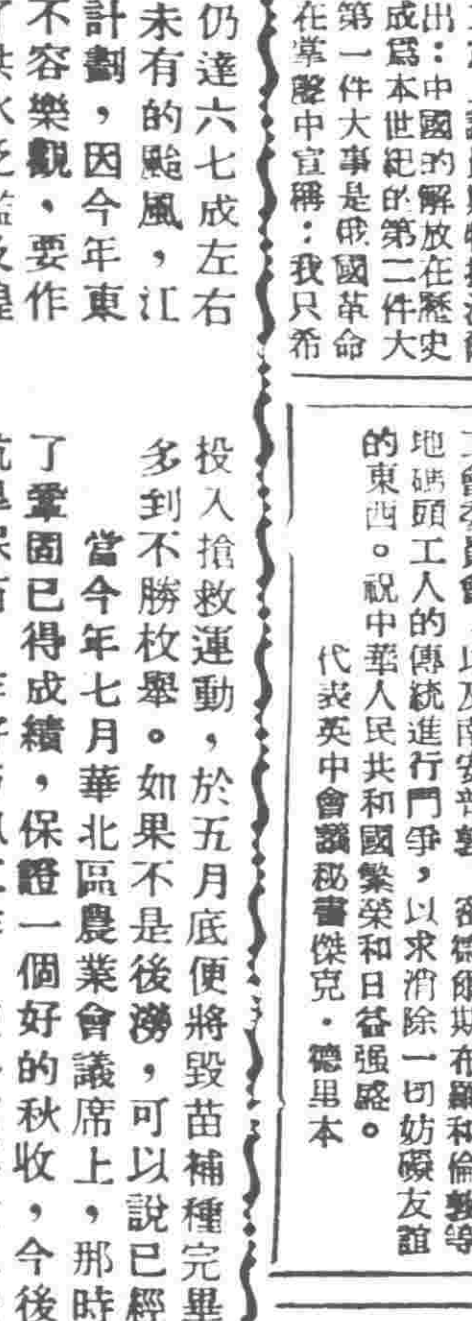 出：中國的解放在歷史
成爲本世紀的第二件大
第一件大事是俄國革命
在掌聲中宣稱：我只希
地碼頭工人的傳統進行鬥爭，以求消除一切妨礙友誼
的東西。祝中華人民共和國繁榮和日益强盛。
代表英中會議秘書傑克·德里本
仍達六七成左右
未有的颱風，江
計劃，因今年東
不容樂觀，要作
投入搶救運動，於五月底便將毀苗補種完畢
多到不勝枚舉。如果不是後澇，可以說已經
當今年七月華北區農業會議席上，那時
了鞏固已得成績，保證一個好的秋收，今後